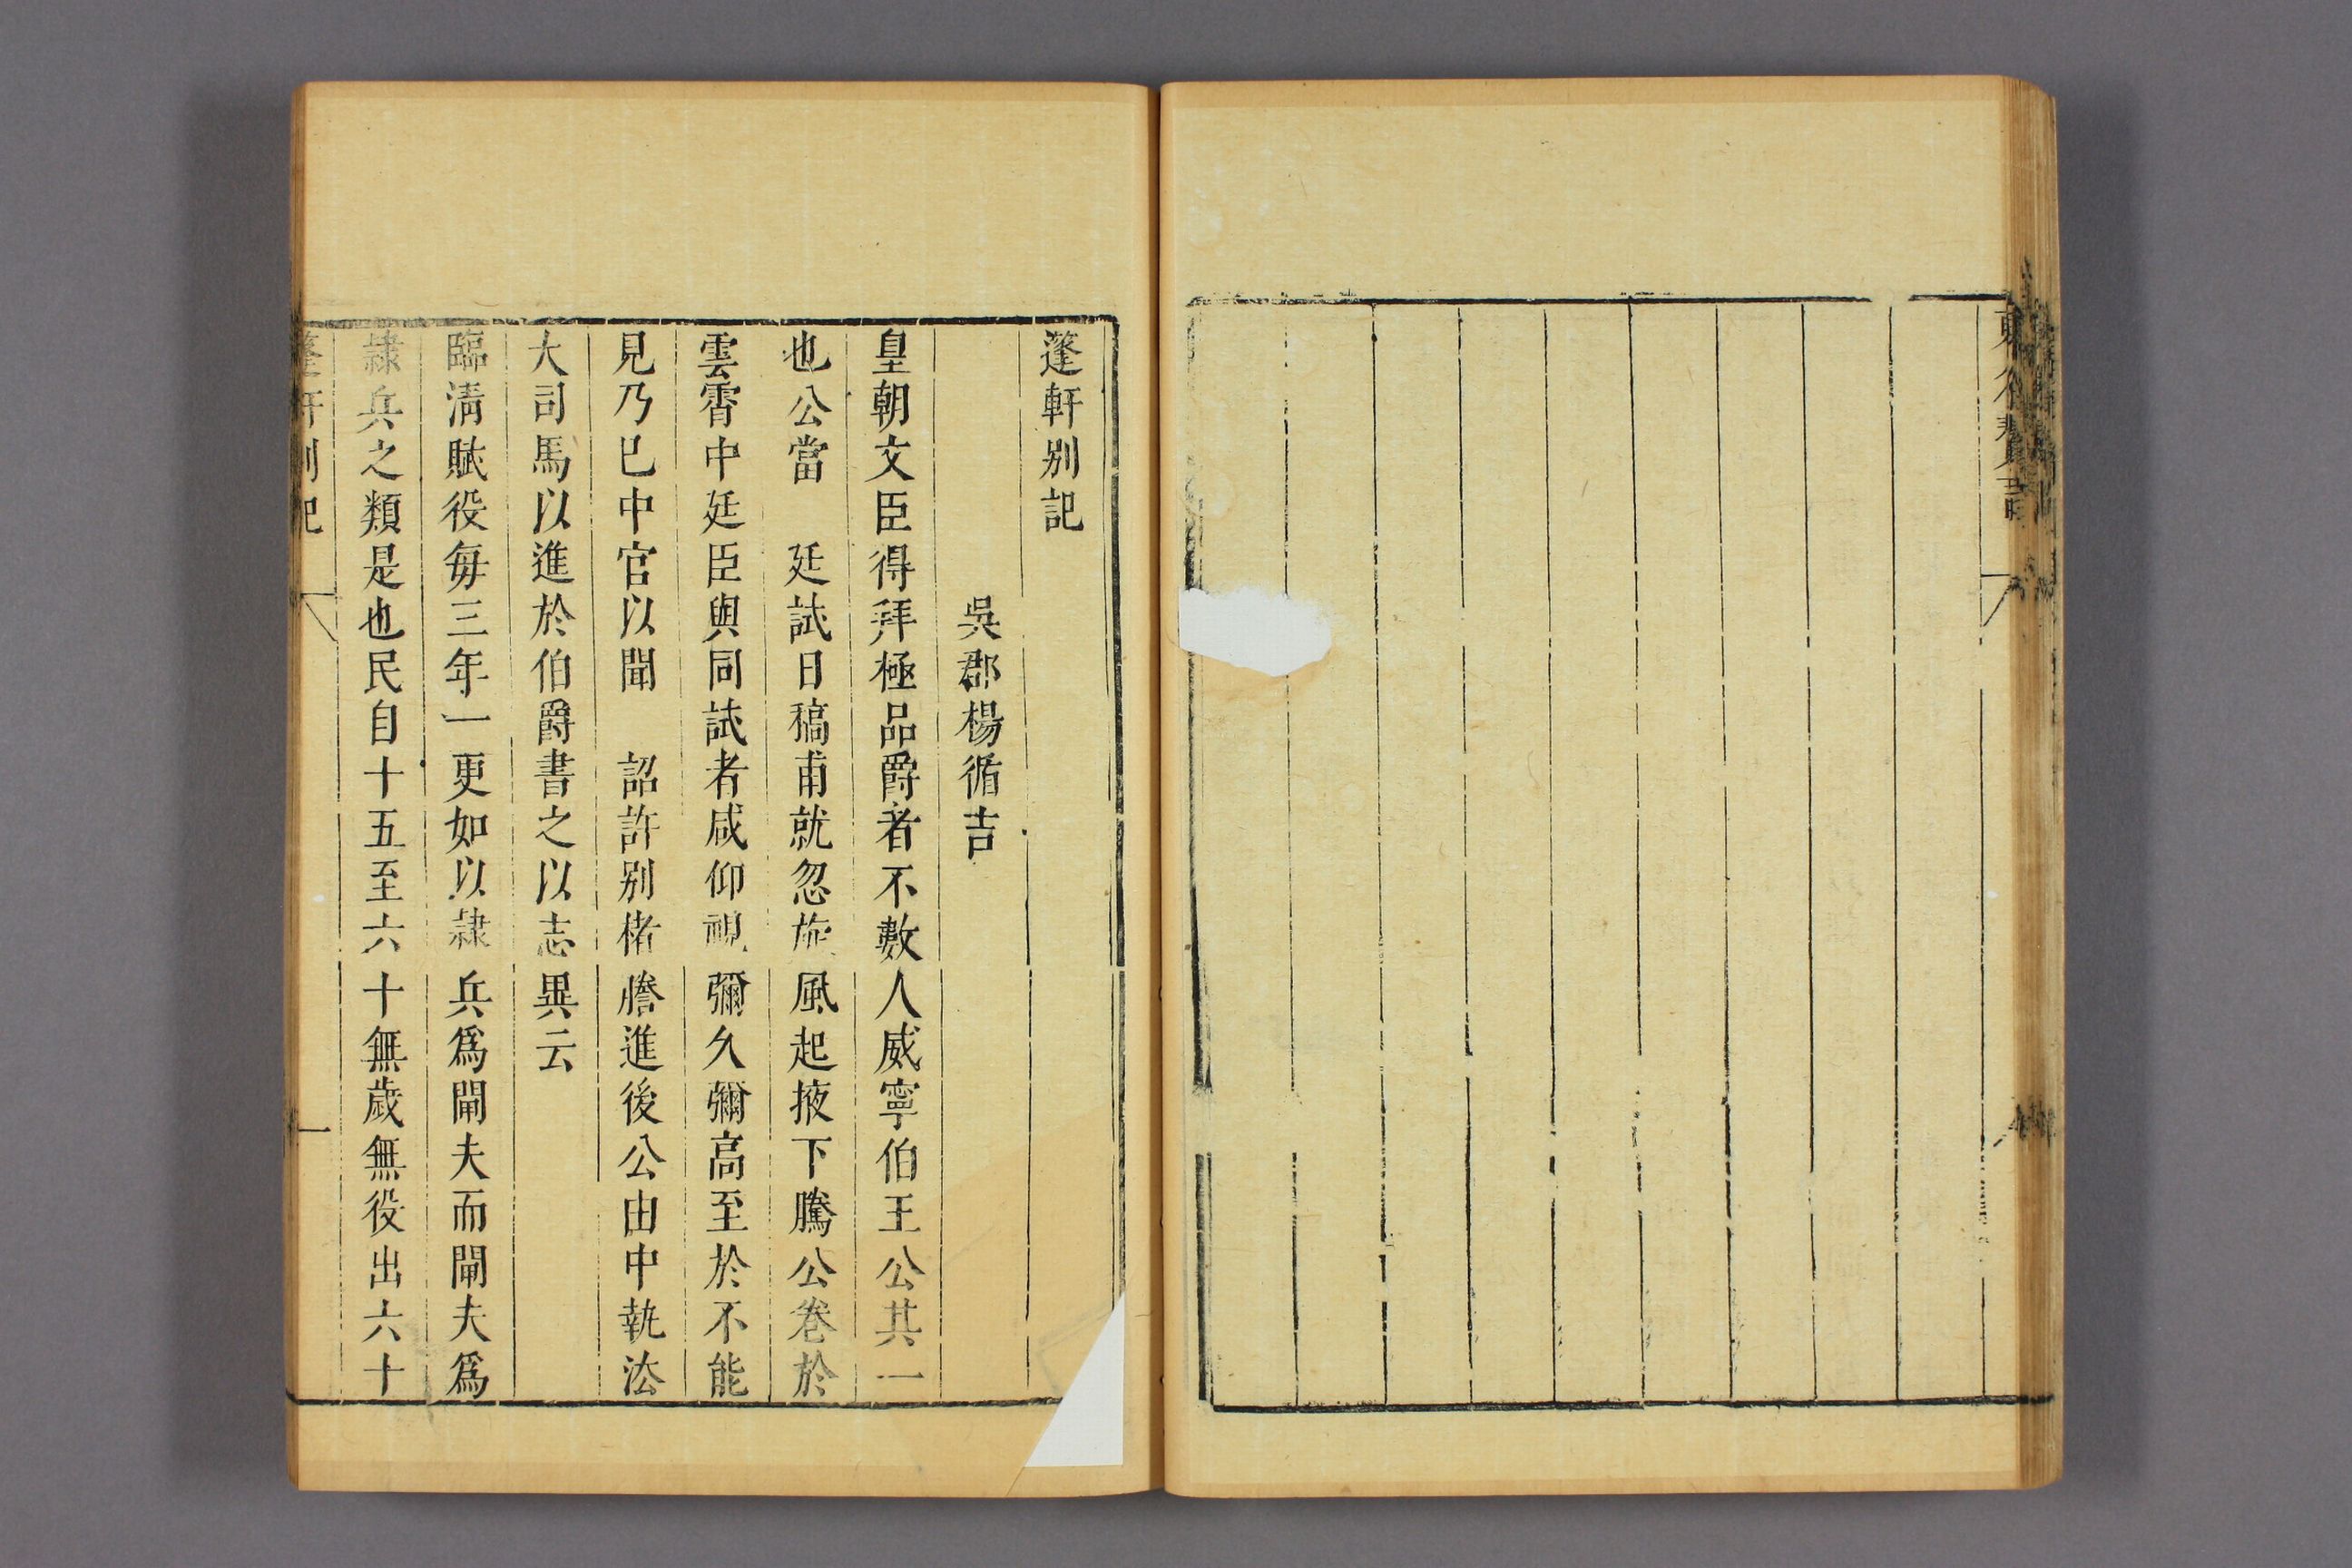 蓬軒别記
吳郡楊循吉
皇朝文臣得拜極品爵者不數人威寧伯王公其一
也公當　廷試日稿甫就忽旋風起掖下騰公卷於
雲霄中廷臣與同試者咸仰視彌久彌高至於不能
見乃已中官以聞　詔許别楮謄進後公由中執法
大司馬以進於伯爵書之以志異云
臨清賦役每三年一更如以隷兵爲閘夫而閘夫爲
隷兵之類是也民自十五至六十無歲無役出六十
蓬軒别記
一